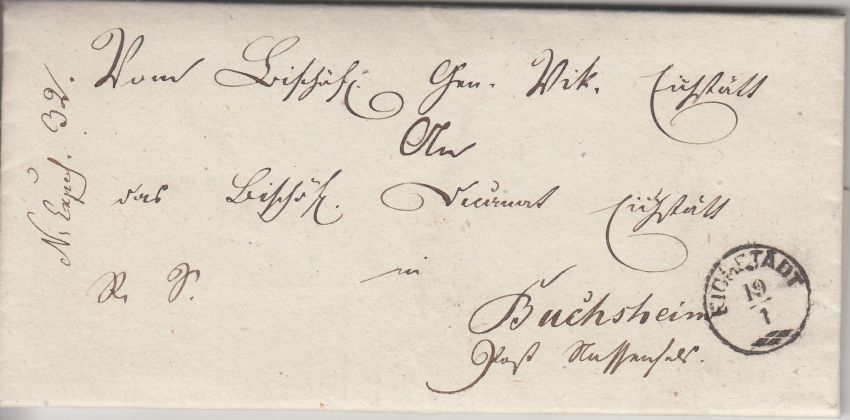 Vom Bischöfl. Gen. Vik. Eichstätt
An
das Bischöfl. Decanat Eichstätt
R. S. in
Buchsheim
Post Nassenfels.
N. Exped. 32.
EICHSTÄDT
19
1